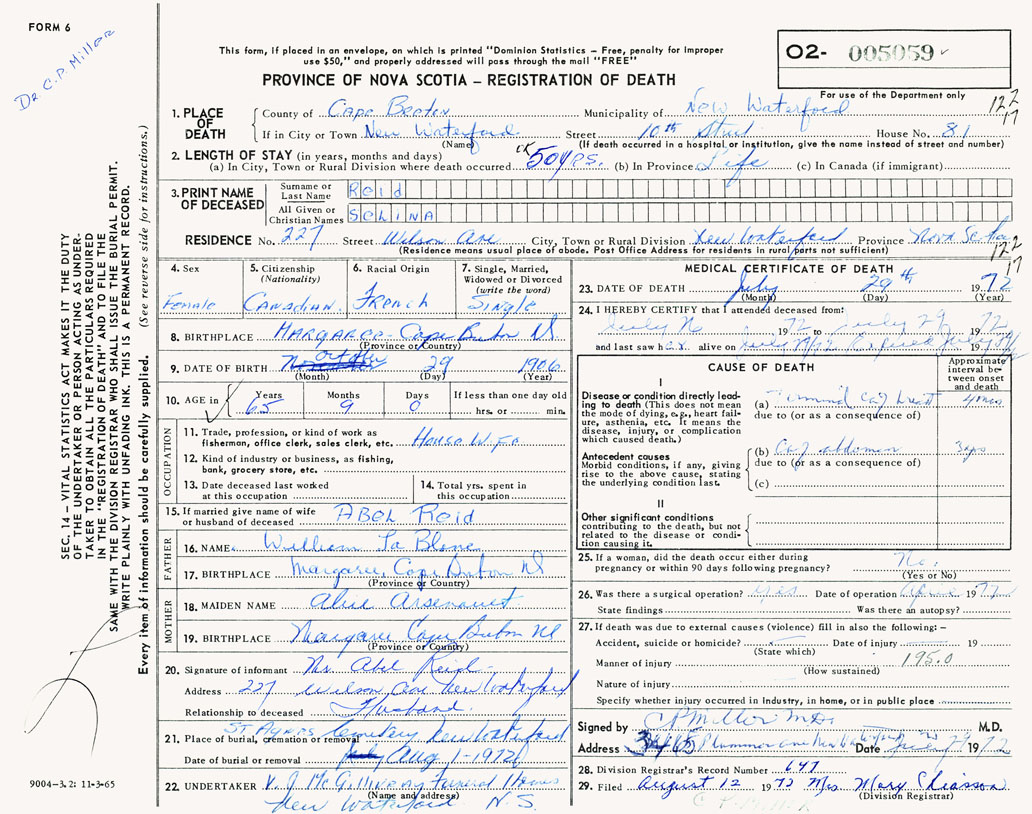 FORM 6
Dr. C.P. Miller
This form, if placed in an envelope, on which is printed "Dominion Statistics – Free, penalty for improper
use $50," and properly addressed will pass through the mail "FREE"
PROVINCE OF NOVA SCOTIA – REGISTRATION OF DEATH
O2- 005059
For use of the Department only
122
17
1. PLACE OF DEATH
County of Cape Breton Municipality of New Waterford
If in City or Town New Waterford Street 10th Street House No. 81
(Name) (If death occurred in a hospital or institution, give the name instead of street and number)
2. LENGTH OF STAY (in years, months and days)
(a) In City, Town or Rural Division where death occurred 50 yrs. (b) In Province Life (c) In Canada (if immigrant)
3. PRINT NAME OF DECEASED
Surname or Last Name Reid
All Given or Christian Names SELINA
RESIDENCE No. 227 Street Wilson Ave City, Town or Rural Division New Waterford Province Nova Scotia
(Residence means usual place of abode. Post Office Address for residents in rural parts not sufficient)
122
17
4. Sex Female
5. Citizenship (Nationality) Canadian
6. Racial Origin French
7. Single, Married, Widowed or Divorced (write the word) Single
8. BIRTHPLACE MARGAREE Cape Breton NS
(Province or Country)
9. DATE OF BIRTH October 29 1906
(Month) (Day) (Year)
10. AGE in Years 65 Months 9 Days 0 If less than one day old hrs. or min.
OCCUPATION
11. Trade, profession, or kind of work as fisherman, office clerk, sales clerk, etc. House Wife
12. Kind of industry or business, as fishing, bank, grocery store, etc.
13. Date deceased last worked at this occupation
14. Total yrs. spent in this occupation
15. If married give name of wife or husband of deceased ABEL Reid
FATHER
16. NAME William La Blanc
17. BIRTHPLACE Margaree Cape Breton NS
(Province or Country)
MOTHER
18. MAIDEN NAME Alice Arsenault
19. BIRTHPLACE Margaree Cape Breton NS
(Province or Country)
20. Signature of informant Mr. Abel Reid
Address 227 Wilson Ave New Waterford
Relationship to deceased Husband
21. Place of burial, cremation or removal St Agnes Cemetery New Waterford
Date of burial or removal Aug 1-1972
22. UNDERTAKER V. J. McGillivray Funeral Home
(Name and address)
New Waterford N.S.
MEDICAL CERTIFICATE OF DEATH
23. DATE OF DEATH July 29th 1972
(Month) (Day) (Year)
24. I HEREBY CERTIFY that I attended deceased from:
July 1972 to July 29 1972
and last saw her alive on
CAUSE OF DEATH
Approximate interval between onset and death
I
Disease or condition directly leading to death (This does not mean the mode of dying, e.g., heart failure, asthenia, etc. It means the disease, injury, or complication which caused death.)
(a) 4 mos
due to (or as a consequence of)
Antecedent causes
Morbid conditions, if any, giving rise to the above cause, stating the underlying condition last.
(b) Ca abdomen 3 yrs
due to (or as a consequence of)
(c)
II
Other significant conditions contributing to the death, but not related to the disease or condition causing it.
25. If a woman, did the death occur either during pregnancy or within 90 days following pregnancy? No.
(Yes or No)
26. Was there a surgical operation? yes Date of operation April 1972
State findings Was there an autopsy?
27. If death was due to external causes (violence) fill in also the following: –
Accident, suicide or homicide? Date of injury 19
(State which)
Manner of injury 195.0
(How sustained)
Nature of injury
Specify whether injury occurred in Industry, in home, or in public place
Signed by C P Miller M.D. M.D.
Address Plummer Ave New Waterford Date July 29 1972
28. Division Registrar's Record Number 647
29. Filed August 12 1972 Mrs Mary Chiasson
(Division Registrar)
SEC. 14 – VITAL STATISTICS ACT MAKES IT THE DUTY
OF THE UNDERTAKER OR PERSON ACTING AS UNDER-
TAKER TO OBTAIN ALL THE PARTICULARS REQUIRED
IN THE "REGISTRATION OF DEATH" AND TO FILE THE
SAME WITH THE DIVISION REGISTRAR WHO SHALL ISSUE THE BURIAL PERMIT.
WRITE PLAINLY WITH UNFADING INK. THIS IS A PERMANENT RECORD.
Every item of information should be carefully supplied. (See reverse side for instructions.)
9004-3.2: 11-3-65